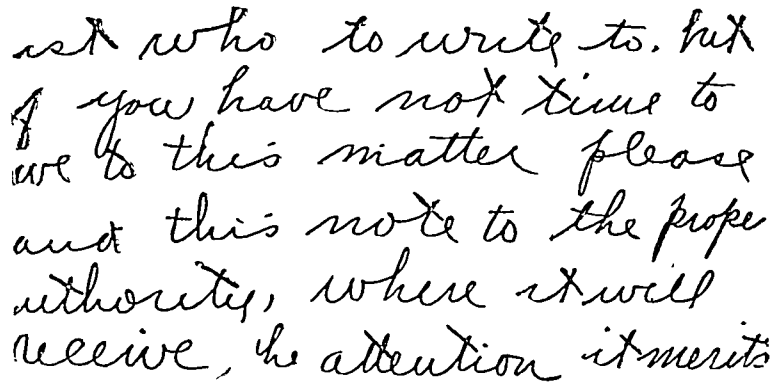 ist who to write to. but
if you have not time to
ive to this matter please
and this note to the prope
uthority, where it will
receive, he attention it merits